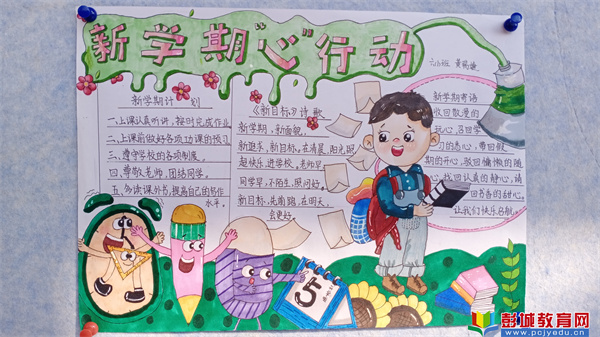 新学期“心”行动
六(5)班
新学期计划
一、上课认真听讲,按时完成作业
二、上课前做好各项功课的预习
三、遵守学校的各项制度。
四、尊敬老师,团结同学。
五、多读课外书,提高自己的写作
水平。
《新目标》诗歌
新学期,新面貌,
新追求,新目标。在清晨,阳光照
趁快乐,进学校。老师早
同学早,不陌生,照问好。
新目标,先前跑,在明天,
会更好。
新学期寄语
收回散漫的
玩心,召回学
习的恒心,带回假
期的开心,驳回慵懒的随
心,找回认真的静心,端
回书香的甜心。
让我们快乐启航。
彭城教育网
www.pcjyedu.cn